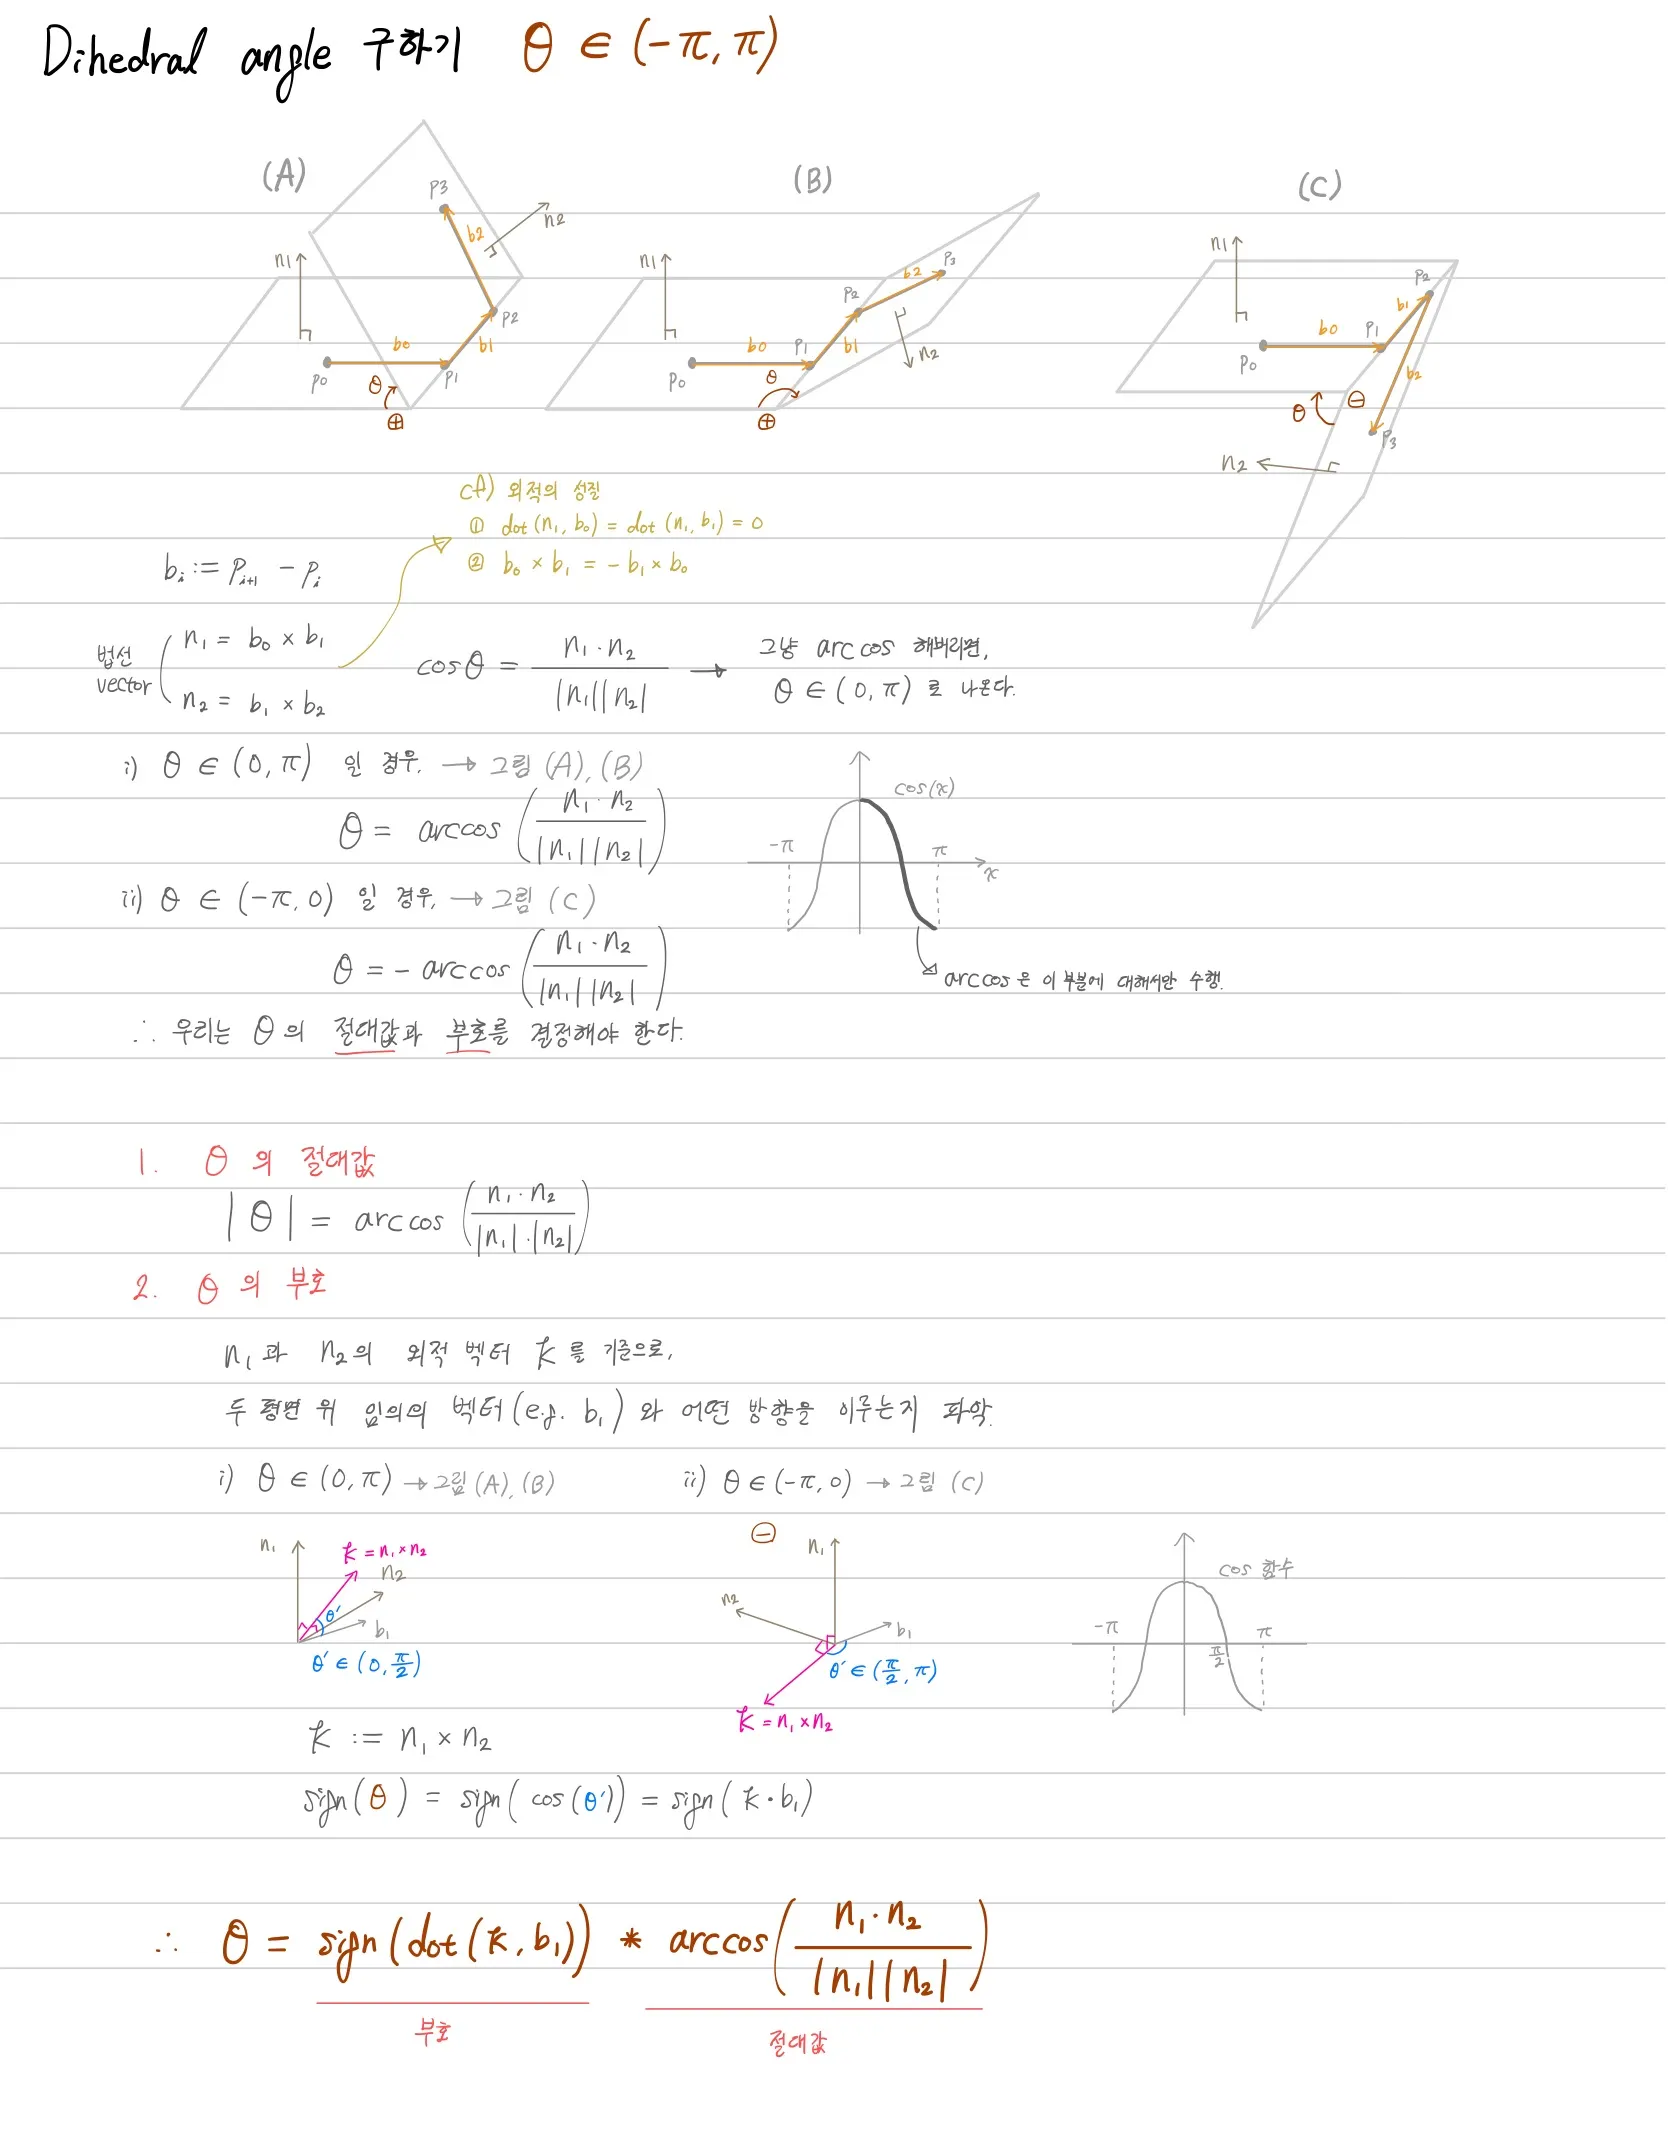 Dihedral angle 구하기 θ ∈ (-π, π)
(A) (B) (C)
n1 n2 p3 b2 p2 b1 b0 p0 p1 θ ⊕
n1 p3 b2 p2 b1 b0 p0 p1 θ ⊕ n2
n1 p2 b1 b0 p1 p0 b2 θ ⊖ p3 n2
cf) 외적의 성질
① dot (n₁, b₀) = dot (n₁, b₁) = 0
② b₀ × b₁ = - b₁ × b₀
bᵢ := pᵢ₊₁ - pᵢ
법선 vector
n₁ = b₀ × b₁
n₂ = b₁ × b₂
cosθ = n₁ · n₂ / |n₁||n₂| →
그냥 arccos 해버리면,
θ ∈ (0, π) 로 나온다.
i) θ ∈ (0, π) 일 경우, → 그림 (A), (B)
θ = arccos (n₁ · n₂ / |n₁||n₂|)
ii) θ ∈ (-π, 0) 일 경우, → 그림 (C)
θ = - arccos (n₁ · n₂ / |n₁||n₂|)
cos(x)
-π π x
arccos은 이 부분에 대해서만 수행.
∴ 우리는 θ의 절대값과 부호를 결정해야 한다.
1. θ의 절대값
|θ| = arccos (n₁ · n₂ / |n₁|·|n₂|)
2. θ의 부호
n₁과 n₂의 외적 벡터 k를 기준으로,
두 평면 위 임의의 벡터(e.g. b₁)와 어떤 방향을 이루는지 파악.
i) θ ∈ (0, π) → 그림 (A), (B)
ii) θ ∈ (-π, 0) → 그림 (C)
n₁ k = n₁ × n₂ n₂ θ' b₁
θ' ∈ (0, π/2)
⊖ n₁ n₂ b₁
θ' ∈ (π/2, π)
k = n₁ × n₂
cos 함수
-π π/2 π
k := n₁ × n₂
sign(θ) = sign(cos(θ')) = sign(k · b₁)
∴ θ = sign(dot(k, b₁)) * arccos(n₁ · n₂ / |n₁||n₂|)
부호 절대값